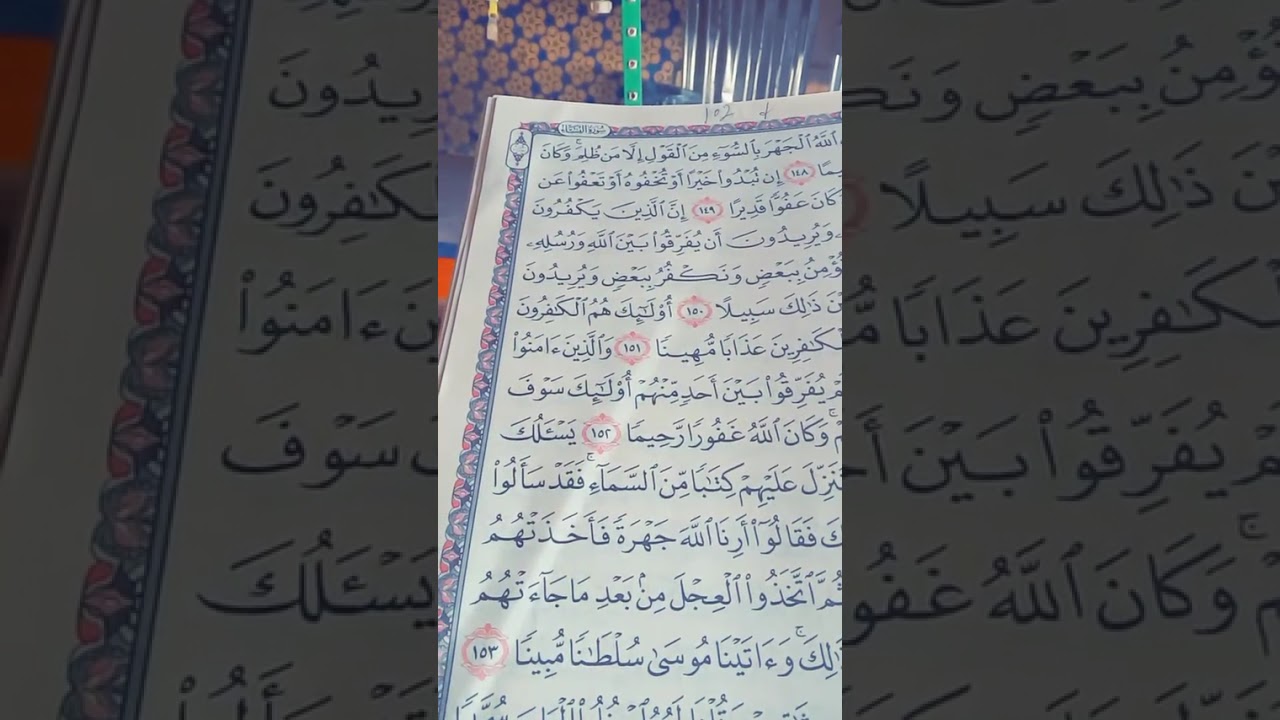 سورة النساء
ٱللَّهُ ٱلْجَهْرَ بِٱلسُّوٓءِ مِنَ ٱلْقَوْلِ إِلَّا مَن ظُلِمَ ۚ وَكَانَ
١٤٨ إِن تُبْدُوا۟ خَيْرًا أَوْ تُخْفُوهُ أَوْ تَعْفُوا۟ عَن
كَانَ عَفُوًّا قَدِيرًا ١٤٩ إِنَّ ٱلَّذِينَ يَكْفُرُونَ
وَيُرِيدُونَ أَن يُفَرِّقُوا۟ بَيْنَ ٱللَّهِ وَرُسُلِهِۦ
بِبَعْضٍ وَنَكْفُرُ بِبَعْضٍ وَيُرِيدُونَ
ذَٰلِكَ سَبِيلًا ١٥٠ أُو۟لَـٰٓئِكَ هُمُ ٱلْكَـٰفِرُونَ
عَذَابًا مُّهِينًا ١٥١ وَٱلَّذِينَ ءَامَنُوا۟
يُفَرِّقُوا۟ بَيْنَ أَحَدٍ مِّنْهُمْ أُو۟لَـٰٓئِكَ سَوْفَ
وَكَانَ ٱللَّهُ غَفُورًا رَّحِيمًا ١٥٢ يَسْـَٔلُكَ
عَلَيْهِمْ كِتَـٰبًا مِّنَ ٱلسَّمَآءِ ۚ فَقَدْ سَأَلُوا۟
فَقَالُوٓا۟ أَرِنَا ٱللَّهَ جَهْرَةً فَأَخَذَتْهُمُ
ٱتَّخَذُوا۟ ٱلْعِجْلَ مِنۢ بَعْدِ مَا جَآءَتْهُمُ
وَءَاتَيْنَا مُوسَىٰ سُلْطَـٰنًا مُّبِينًا ١٥٣